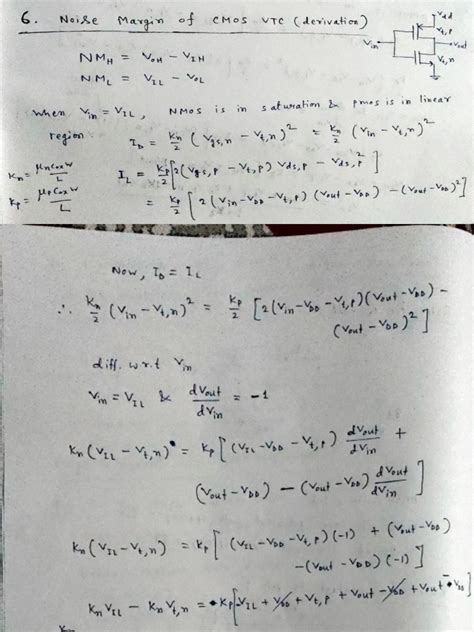 6. Noise Margin of CMOS VTC (derivation)
Vdd
Vt,p
Vin
Vout
Vt,n
NMH = VOH - VIH
NML = VIL - VOL
When Vin = VIL, NMOS is in saturation & pmos is in linear
region.
ID = kn/2 (Vgs,n - Vt,n)² = kn/2 (Vin - Vt,n)²
kn = μnCoxW/L
IL = kp/2 [2(Vgs,p - Vt,p) Vds,p - Vds,p²]
kp = μpCoxW/L
= kp/2 [2(Vin - VDD - Vt,p) (Vout - VDD) - (Vout - VDD)²]
Now, ID = IL
∴ kn/2 (Vin - Vt,n)² = kp/2 [2(Vin - VDD - Vt,p)(Vout - VDD) -
(Vout - VDD)²]
diff. w.r.t Vin
Vin = VIL & dVout/dVin = -1
kn (VIL - Vt,n) = kp [(VIL - VDD - Vt,p) dVout/dVin +
(Vout - VDD) - (Vout - VDD) dVout/dVin]
kn (VIL - Vt,n) = kp [(VIL - VDD - Vt,p)(-1) + (Vout - VDD)
- (Vout - VDD)(-1)]
kn VIL - kn Vt,n = kp [-VIL + VDD + Vt,p + Vout - VDD + Vout - VDD]